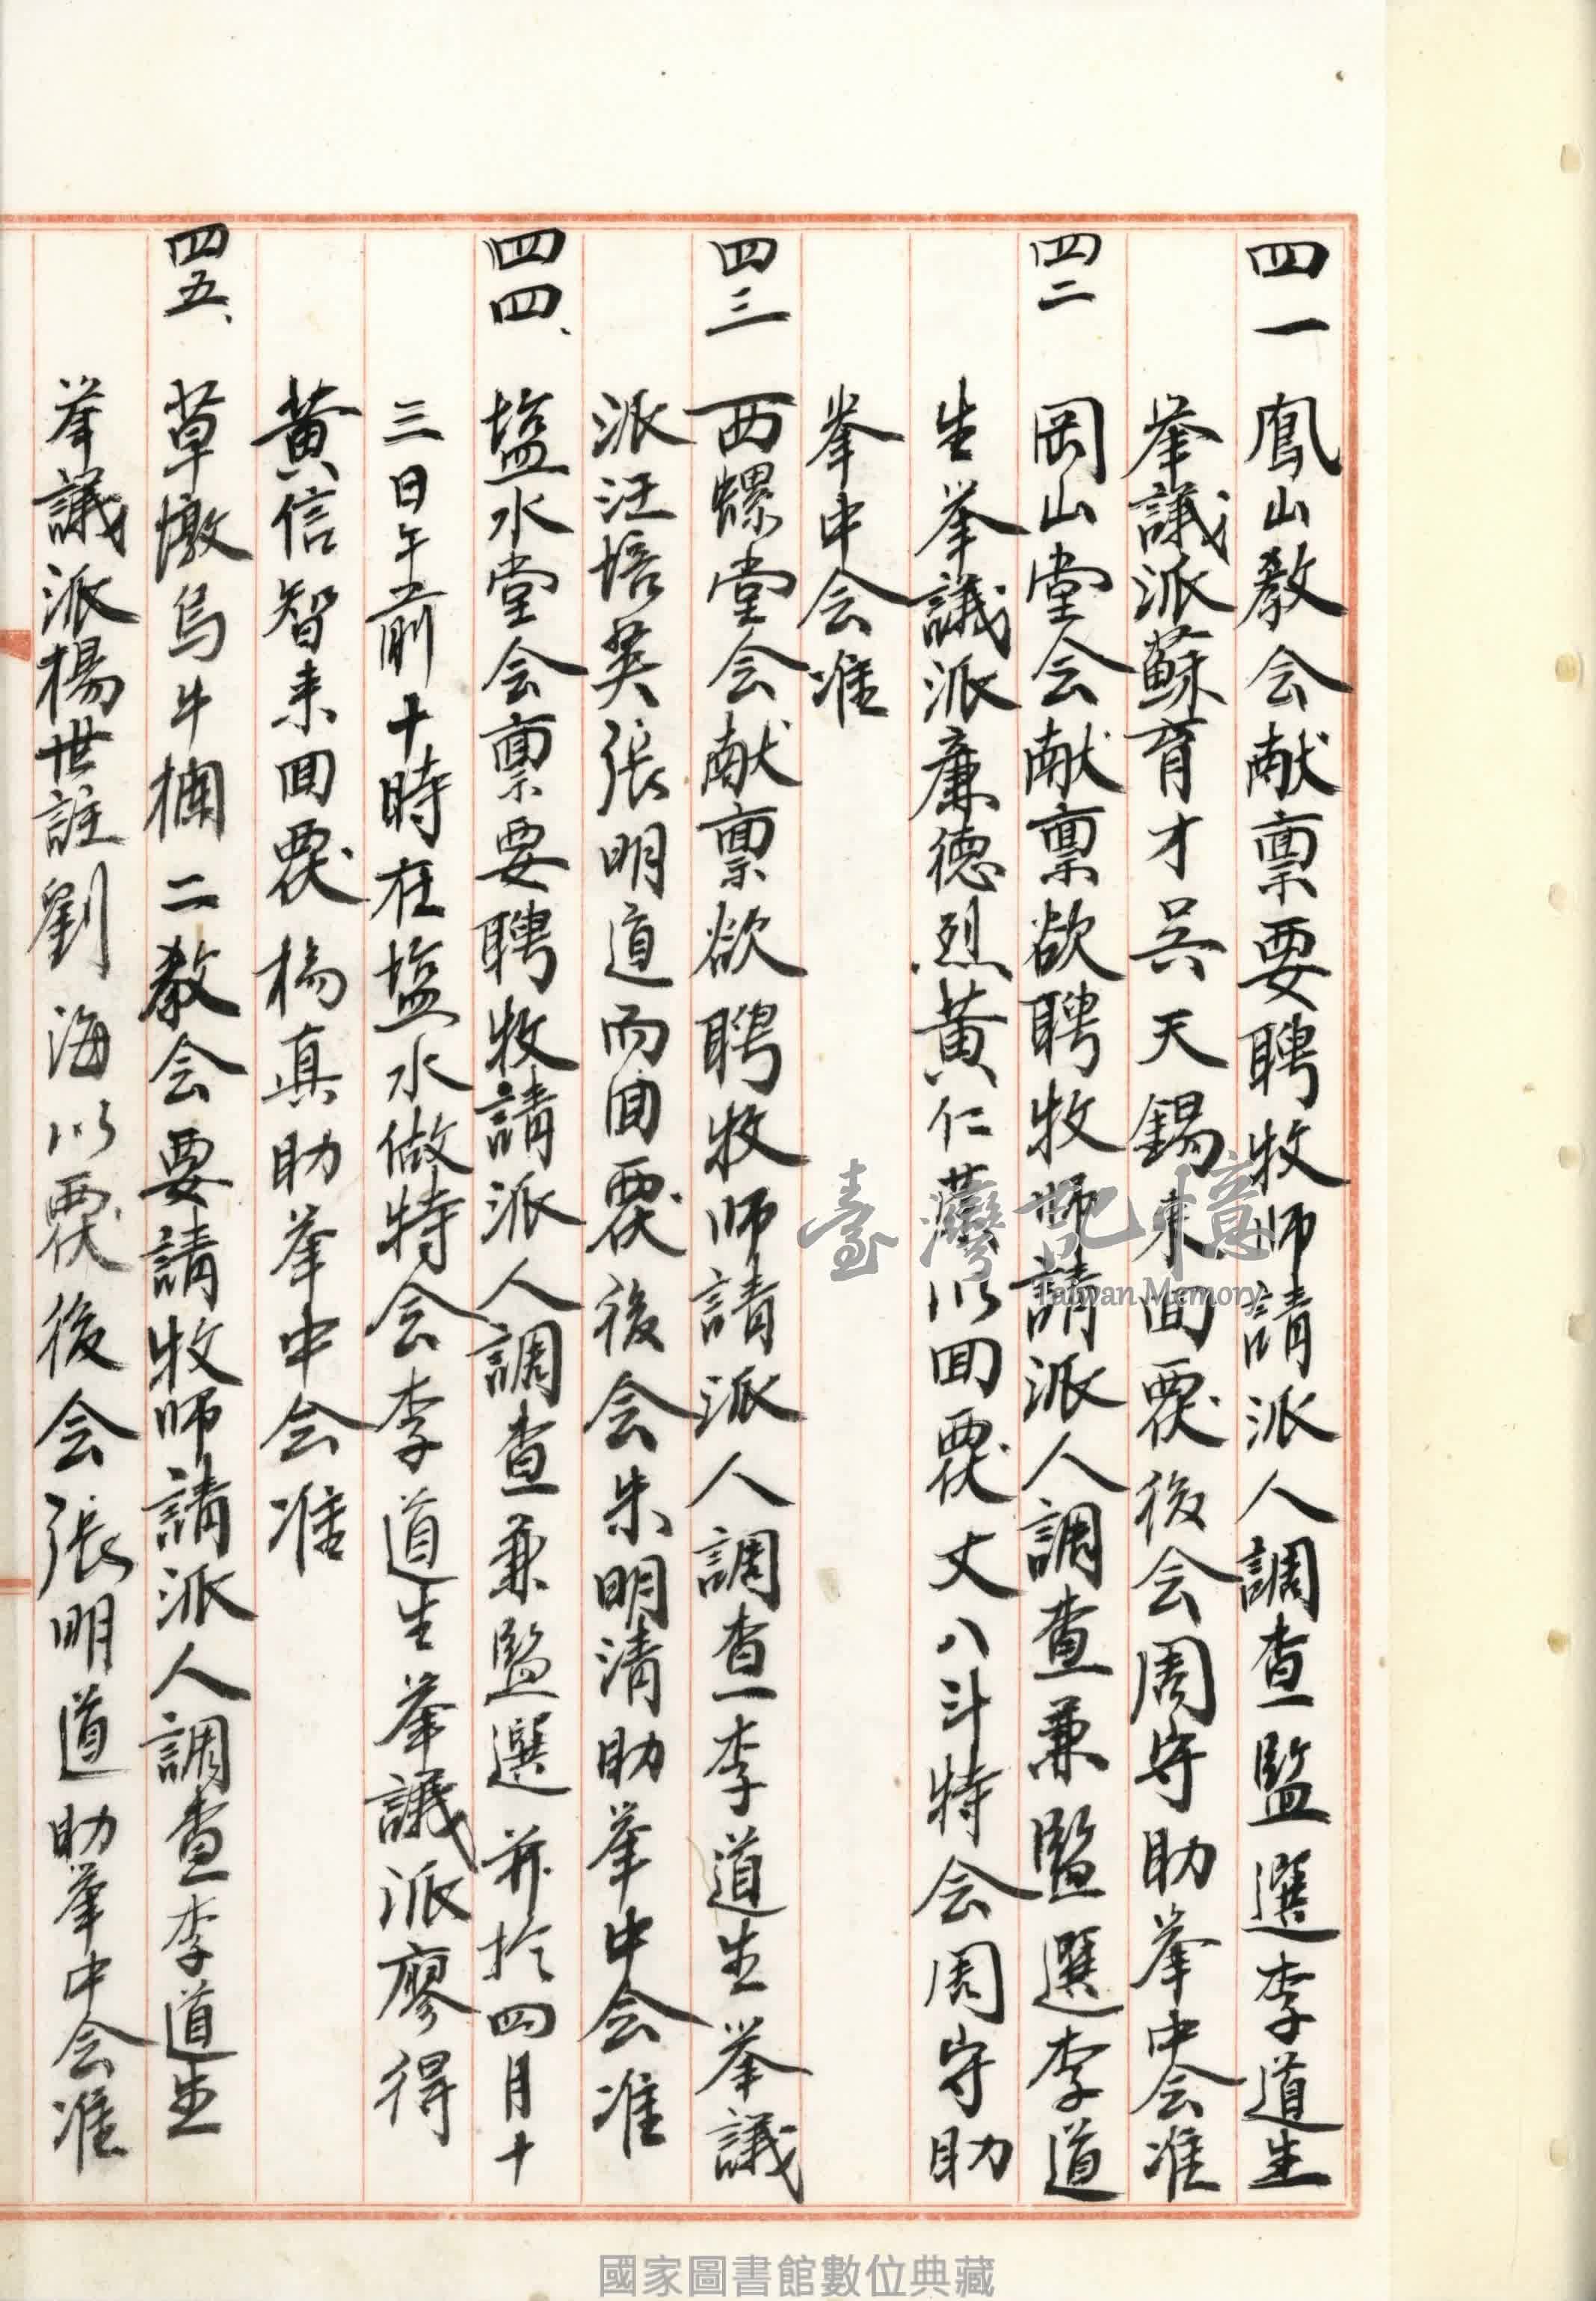 四一 鳳山教会献禀要聘牧师請派人調查監選李道生
举議派蘇育才吴天錫来囬覆後会周守助举中会准
四二 岡山堂会献禀欲聘牧师請派人調查兼監選李道
生举議派廉德烈黄仁藂以囬覆丈八斗特会周守助
举中会准
四三 西螺堂会献禀欲聘牧师請派人調查李道生举議
派汪培英張明道而囬覆後会朱明清助举中会准
四四、塩水堂会禀要聘牧請派人調查兼監選并於四月十
三日午前十時在塩水做特会李道生举議派廖得
黄信智来囬覆杨真助举中会准
四五、草墩烏牛楠二教会要請牧师請派人調查李道生
举議派楊世註劉海以覆後会張明道助举中会准
臺灣記憶
Taiwan Memory
國家圖書館數位典藏